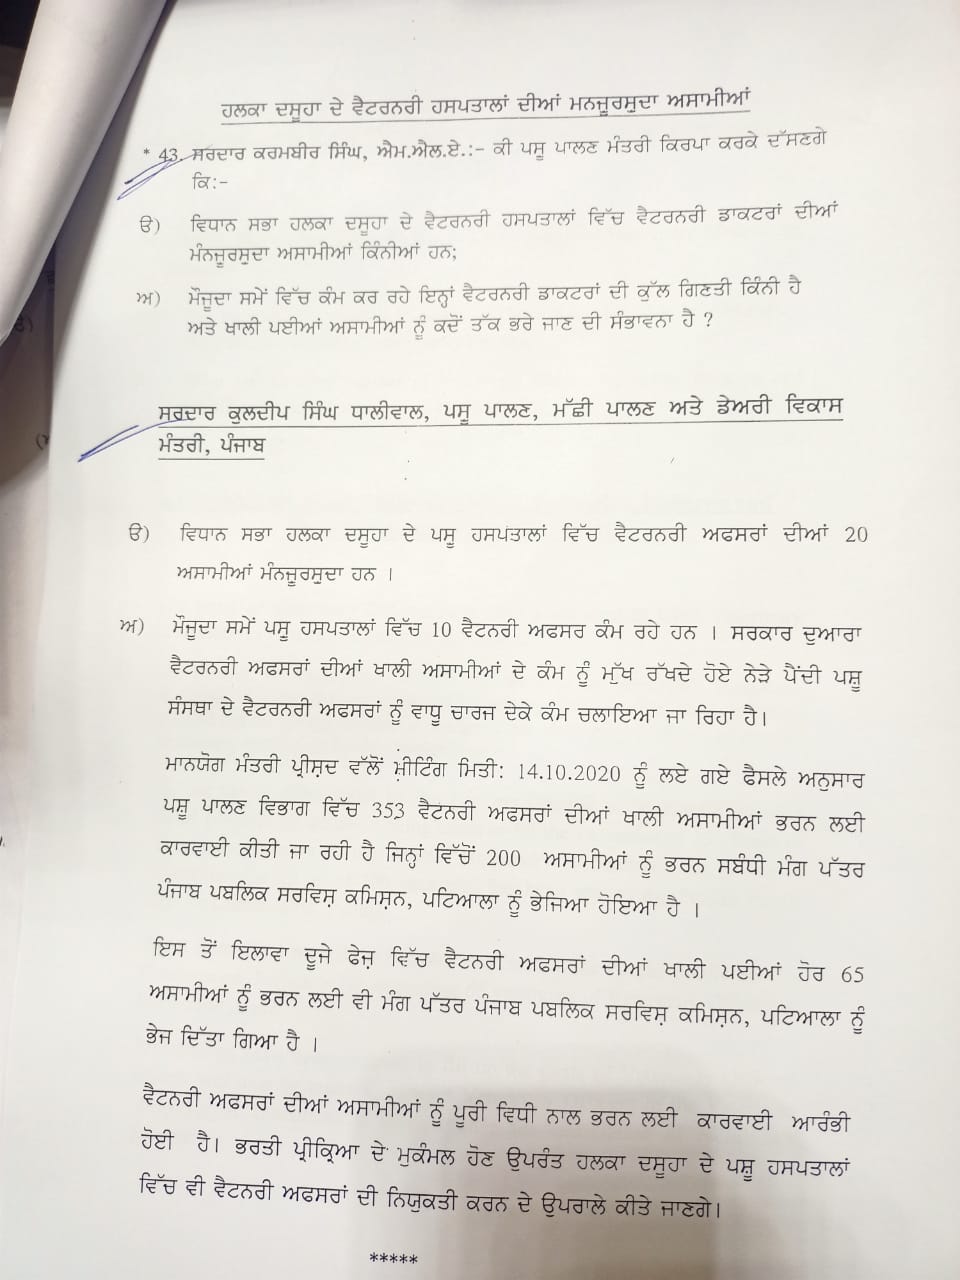 ਹਲਕਾ ਦਸੂਹਾ ਦੇ ਵੈਟਰਨਰੀ ਹਸਪਤਾਲਾਂ ਦੀਆਂ ਮਨਜੂਰਸੁਦਾ ਅਸਾਮੀਆਂ
* 43. ਸਰਦਾਰ ਕਰਮਬੀਰ ਸਿੰਘ, ਐਮ.ਐਲ.ਏ.:- ਕੀ ਪਸੂ ਪਾਲਣ ਮੰਤਰੀ ਕਿਰਪਾ ਕਰਕੇ ਦੱਸਣਗੇ
ਕਿ:-
ੳ) ਵਿਧਾਨ ਸਭਾ ਹਲਕਾ ਦਸੂਹਾ ਦੇ ਵੈਟਰਨਰੀ ਹਸਪਤਾਲਾਂ ਵਿੱਚ ਵੈਟਰਨਰੀ ਡਾਕਟਰਾਂ ਦੀਆਂ
ਮੰਨਜੂਰਸੁਦਾ ਅਸਾਮੀਆਂ ਕਿੰਨੀਆਂ ਹਨ;
ਅ) ਮੌਜੂਦਾ ਸਮੇਂ ਵਿੱਚ ਕੰਮ ਕਰ ਰਹੇ ਇਨ੍ਹਾਂ ਵੈਟਰਨਰੀ ਡਾਕਟਰਾਂ ਦੀ ਕੁੱਲ ਗਿਣਤੀ ਕਿੰਨੀ ਹੈ
ਅਤੇ ਖਾਲੀ ਪਈਆਂ ਅਸਾਮੀਆਂ ਨੂੰ ਕਦੋਂ ਤੱਕ ਭਰੇ ਜਾਣ ਦੀ ਸੰਭਾਵਨਾ ਹੈ ?
ਸਰਦਾਰ ਕੁਲਦੀਪ ਸਿੰਘ ਧਾਲੀਵਾਲ, ਪਸੂ ਪਾਲਣ, ਮੱਛੀ ਪਾਲਣ ਅਤੇ ਡੇਅਰੀ ਵਿਕਾਸ
ਮੰਤਰੀ, ਪੰਜਾਬ
ੳ) ਵਿਧਾਨ ਸਭਾ ਹਲਕਾ ਦਸੂਹਾ ਦੇ ਪਸੂ ਹਸਪਤਾਲਾਂ ਵਿੱਚ ਵੈਟਰਨਰੀ ਅਫਸਰਾਂ ਦੀਆਂ 20
ਅਸਾਮੀਆਂ ਮੰਨਜੂਰਸੁਦਾ ਹਨ ।
ਅ) ਮੌਜੂਦਾ ਸਮੇਂ ਪਸੂ ਹਸਪਤਾਲਾਂ ਵਿੱਚ 10 ਵੈਟਨਰੀ ਅਫਸਰ ਕੰਮ ਰਹੇ ਹਨ । ਸਰਕਾਰ ਦੁਆਰਾ
ਵੈਟਰਨਰੀ ਅਫਸਰਾਂ ਦੀਆਂ ਖਾਲੀ ਅਸਾਮੀਆਂ ਦੇ ਕੰਮ ਨੂੰ ਮੁੱਖ ਰੱਖਦੇ ਹੋਏ ਨੇੜੇ ਪੈਂਦੀ ਪਸ਼ੂ
ਸੰਸਥਾ ਦੇ ਵੈਟਰਨਰੀ ਅਫਸਰਾਂ ਨੂੰ ਵਾਧੂ ਚਾਰਜ ਦੇਕੇ ਕੰਮ ਚਲਾਇਆ ਜਾ ਰਿਹਾ ਹੈ।
ਮਾਨਯੋਗ ਮੰਤਰੀ ਪ੍ਰੀਸ਼ਦ ਵੱਲੋਂ ਮੀਟਿੰਗ ਮਿਤੀ: 14.10.2020 ਨੂੰ ਲਏ ਗਏ ਫੈਸਲੇ ਅਨੁਸਾਰ
ਪਸ਼ੂ ਪਾਲਣ ਵਿਭਾਗ ਵਿੱਚ 353 ਵੈਟਨਰੀ ਅਫਸਰਾਂ ਦੀਆਂ ਖਾਲੀ ਅਸਾਮੀਆਂ ਭਰਨ ਲਈ
ਕਾਰਵਾਈ ਕੀਤੀ ਜਾ ਰਹੀ ਹੈ ਜਿਨ੍ਹਾਂ ਵਿੱਚੋਂ 200 ਅਸਾਮੀਆਂ ਨੂੰ ਭਰਨ ਸਬੰਧੀ ਮੰਗ ਪੱਤਰ
ਪੰਜਾਬ ਪਬਲਿਕ ਸਰਵਿਸ਼ ਕਮਿਸ਼ਨ, ਪਟਿਆਲਾ ਨੂੰ ਭੇਜਿਆ ਹੋਇਆ ਹੈ ।
ਇਸ ਤੋਂ ਇਲਾਵਾ ਦੂਜੇ ਫੇਜ਼ ਵਿੱਚ ਵੈਟਨਰੀ ਅਫਸਰਾਂ ਦੀਆਂ ਖਾਲੀ ਪਈਆਂ ਹੋਰ 65
ਅਸਾਮੀਆਂ ਨੂੰ ਭਰਨ ਲਈ ਵੀ ਮੰਗ ਪੱਤਰ ਪੰਜਾਬ ਪਬਲਿਕ ਸਰਵਿਸ਼ ਕਮਿਸ਼ਨ, ਪਟਿਆਲਾ ਨੂੰ
ਭੇਜ ਦਿੱਤਾ ਗਿਆ ਹੈ ।
ਵੈਟਨਰੀ ਅਫਸਰਾਂ ਦੀਆਂ ਅਸਾਮੀਆਂ ਨੂੰ ਪੂਰੀ ਵਿਧੀ ਨਾਲ ਭਰਨ ਲਈ ਕਾਰਵਾਈ ਆਰੰਭੀ
ਹੋਈ ਹੈ। ਭਰਤੀ ਪ੍ਰੀਕ੍ਰਿਆ ਦੇ ਮੁਕੰਮਲ ਹੋਣ ਉਪਰੰਤ ਹਲਕਾ ਦਸੂਹਾ ਦੇ ਪਸ਼ੂ ਹਸਪਤਾਲਾਂ
ਵਿੱਚ ਵੀ ਵੈਟਨਰੀ ਅਫਸਰਾਂ ਦੀ ਨਿਯੁਕਤੀ ਕਰਨ ਦੇ ਉਪਰਾਲੇ ਕੀਤੇ ਜਾਣਗੇ।
*****